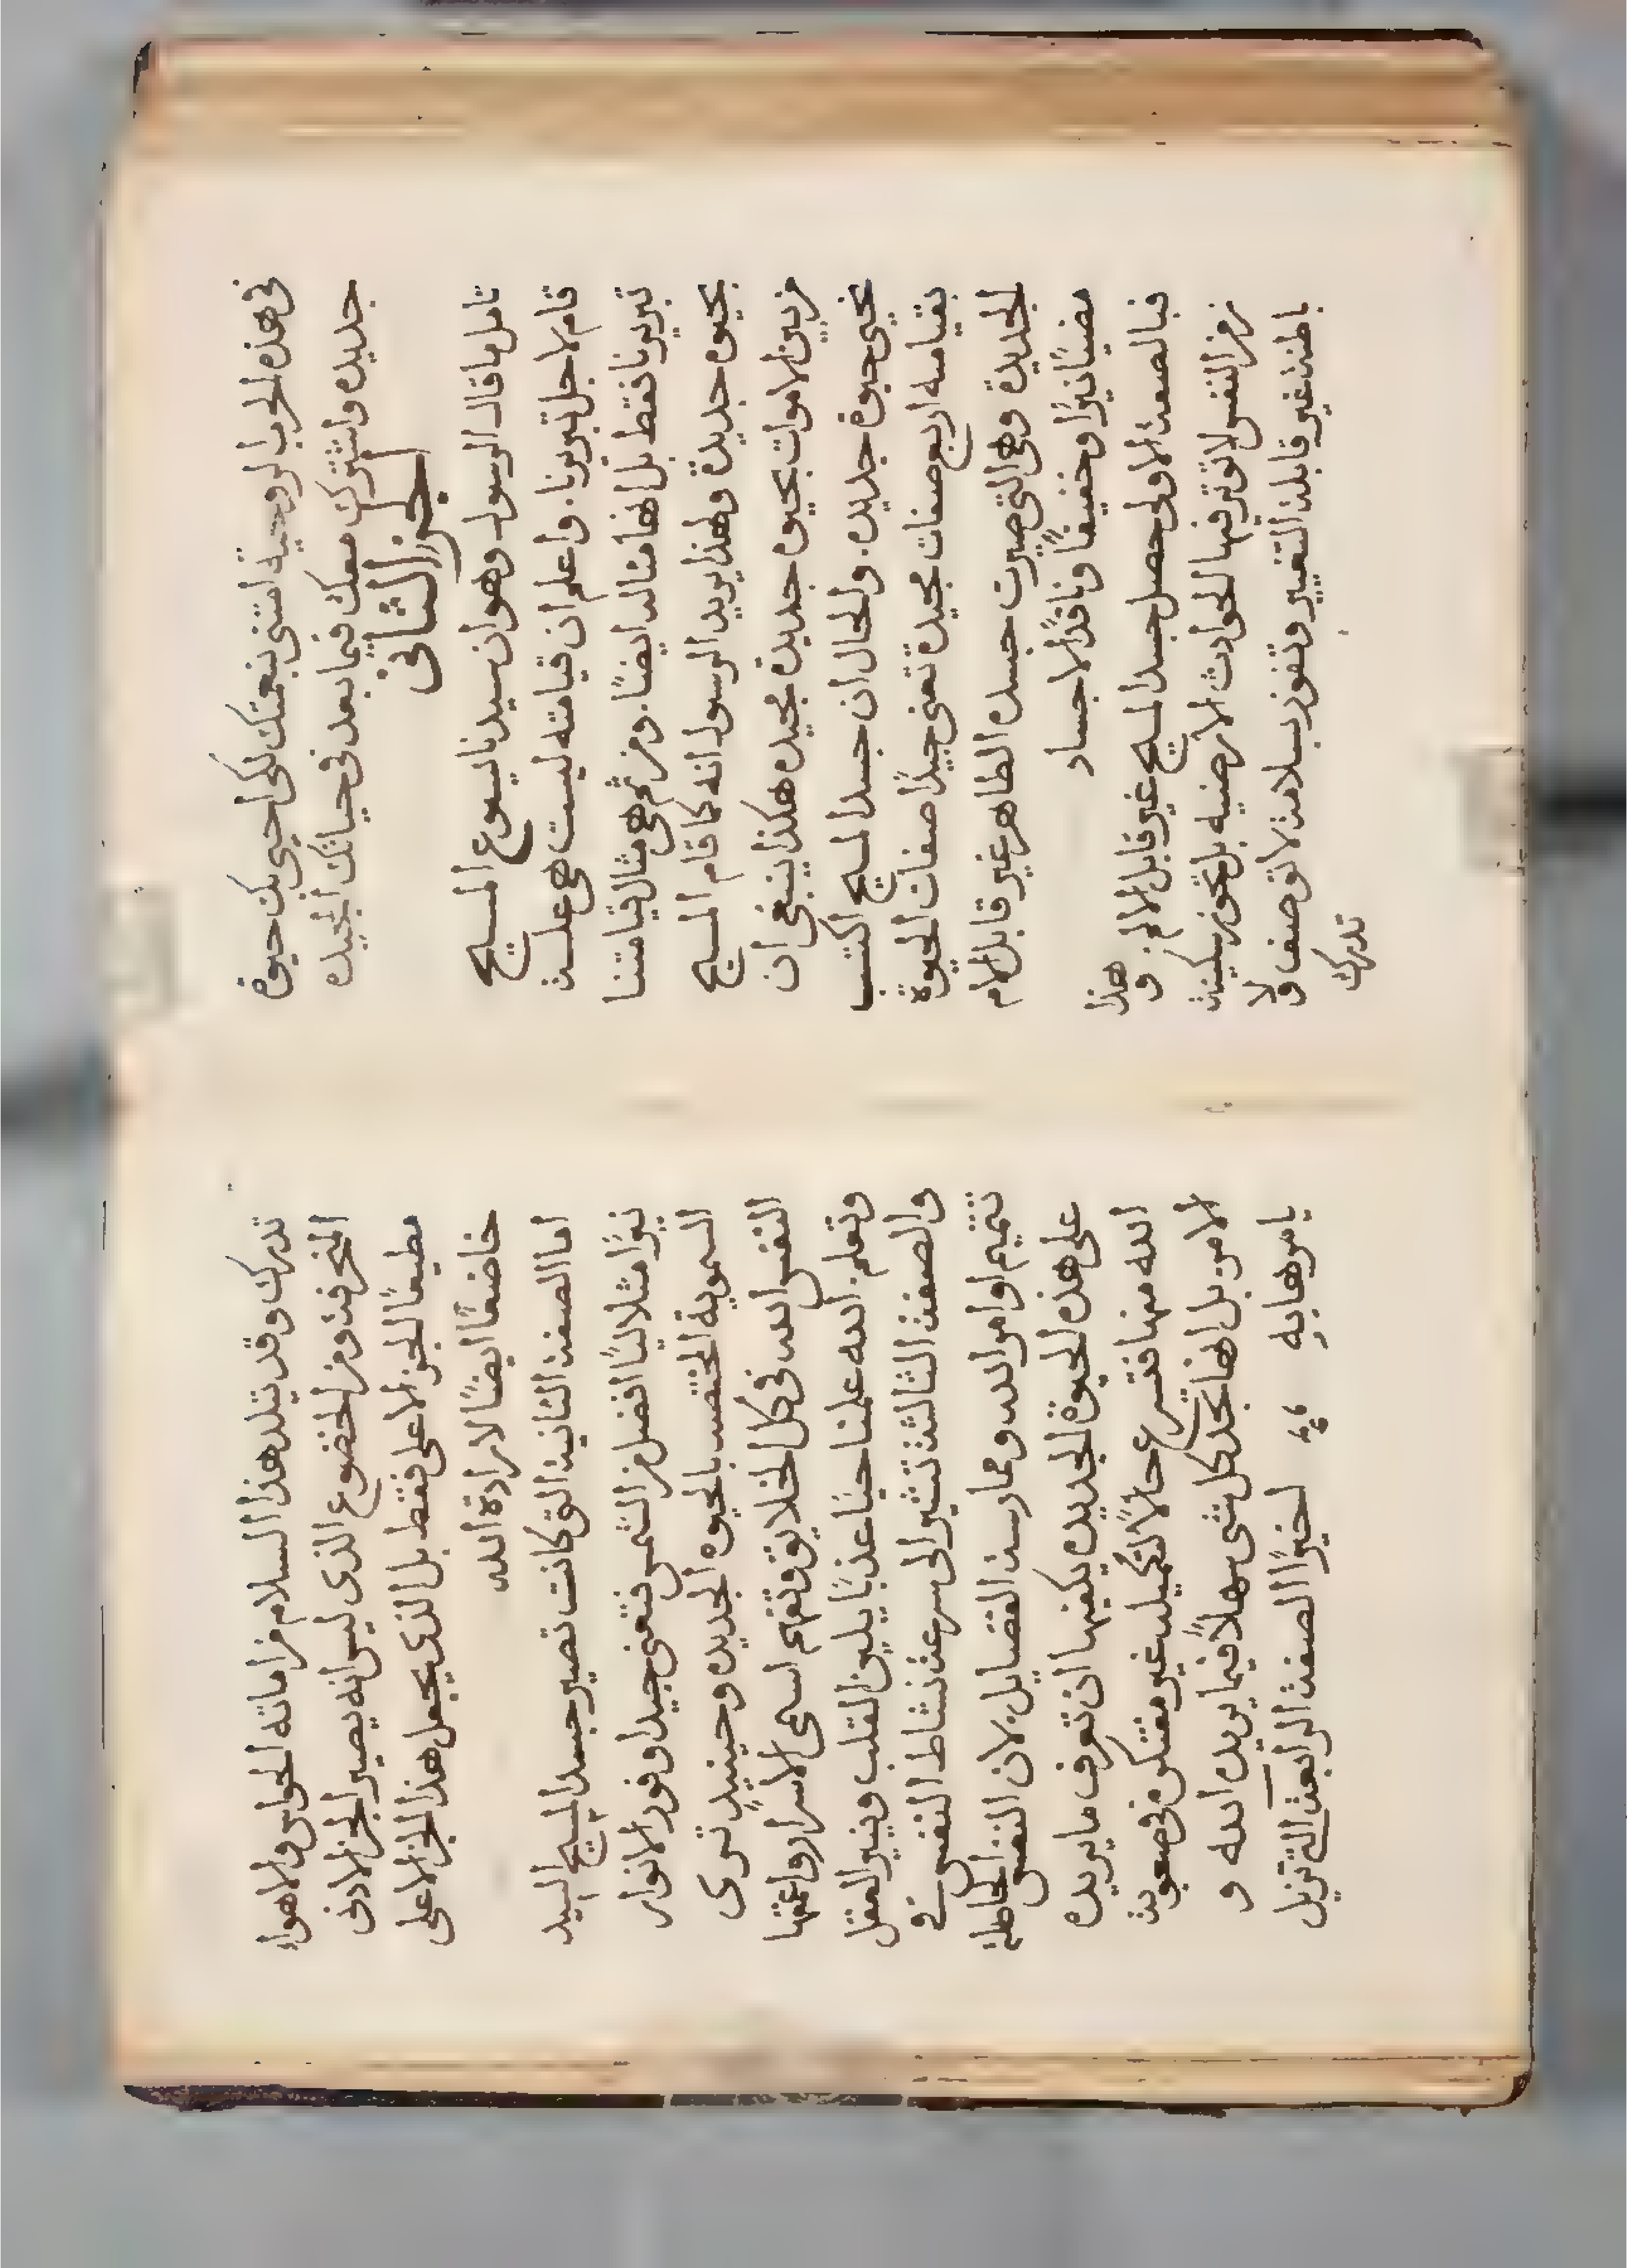 في هذه الحرب الروحية امنني بنعمتك لكي احيى بك حيوة
جديده واشترك معك فيما بعد في حياتك المجيده
الجزء الثاني
تامل ما قاله الرسول وهو ان سيدنا يسوع المسيح
قام لاجل تبريرنا. واعلم ان قيامته ليست هي علة
تبريرنا فقط بل انها مثاله ايضًا. ومن ثم هي مثال قيامتنا
بحيوه جديدة ولهذا يريد الرسول انه كما قام المسيح
من بين الاموات بحيوه جديدة مجيده هكذا ينبغي ان
نحيى حيوة جديده. والحال ان جسد المسيح اكتسب
بقيامته اربع صفات مجيدة تعني جيدًا صفات الحيوة
الجديدة وهي التي صيرت جسده الطاهر غير قابل الالام
مضيًا نيرًا وخفيفًا ونافذًا الاجساد
فبالصفة الاولى حصل جسد المسيح غير قابل الالم. و هذا
رمز النفس لا توثر فيها الحوادث الارضيه بل تحوز سكينة
باطنة غير قابلة التغيير وتفوز بسلامة لا توصف ولا
تدرك
تدرك وقد يتلد هذا السلام من اماتة الحواس والاهواء
المنحرفة ومن الخضوع الذي ليس انه يصير الجز الادنى
مطيعًا للجز الاعلى فقط بل الذي يجعل هذا الجز الاعلى
خاضعًا ايضًا لارادة الله
اما الصفة الثانية التي كانت تصير جسد المسيح السيد
نيرًا متلاليًا افضل من الشمس فتعني جيدا وفور الانوار
السموية المختصه بالحيوه الجديده وحينيذٍ ترى
النفس الله في كل الخلايق وتفهم اسمى الاسرار واعمقها
وتعلم الله علمنا حيًا عذبًا يلين القلب وينير العقل
والصفة الثالثة تشير الى سرعة نشاط النفس في
تتميم اوامر الله وممارسة الفضايل. لان النفس الحاصلة
على هذه الحيوة الجديده يكفيها ان تعرف ما يريده
الله منها فتسرع حالًا لتكميله غير مفتكره في صعوبة
الامر بل انها تجد كل شي سهلًا فيما يريده الله و
يامرها بهِ    اخيرًا الصفة الرابعة التي تزيل